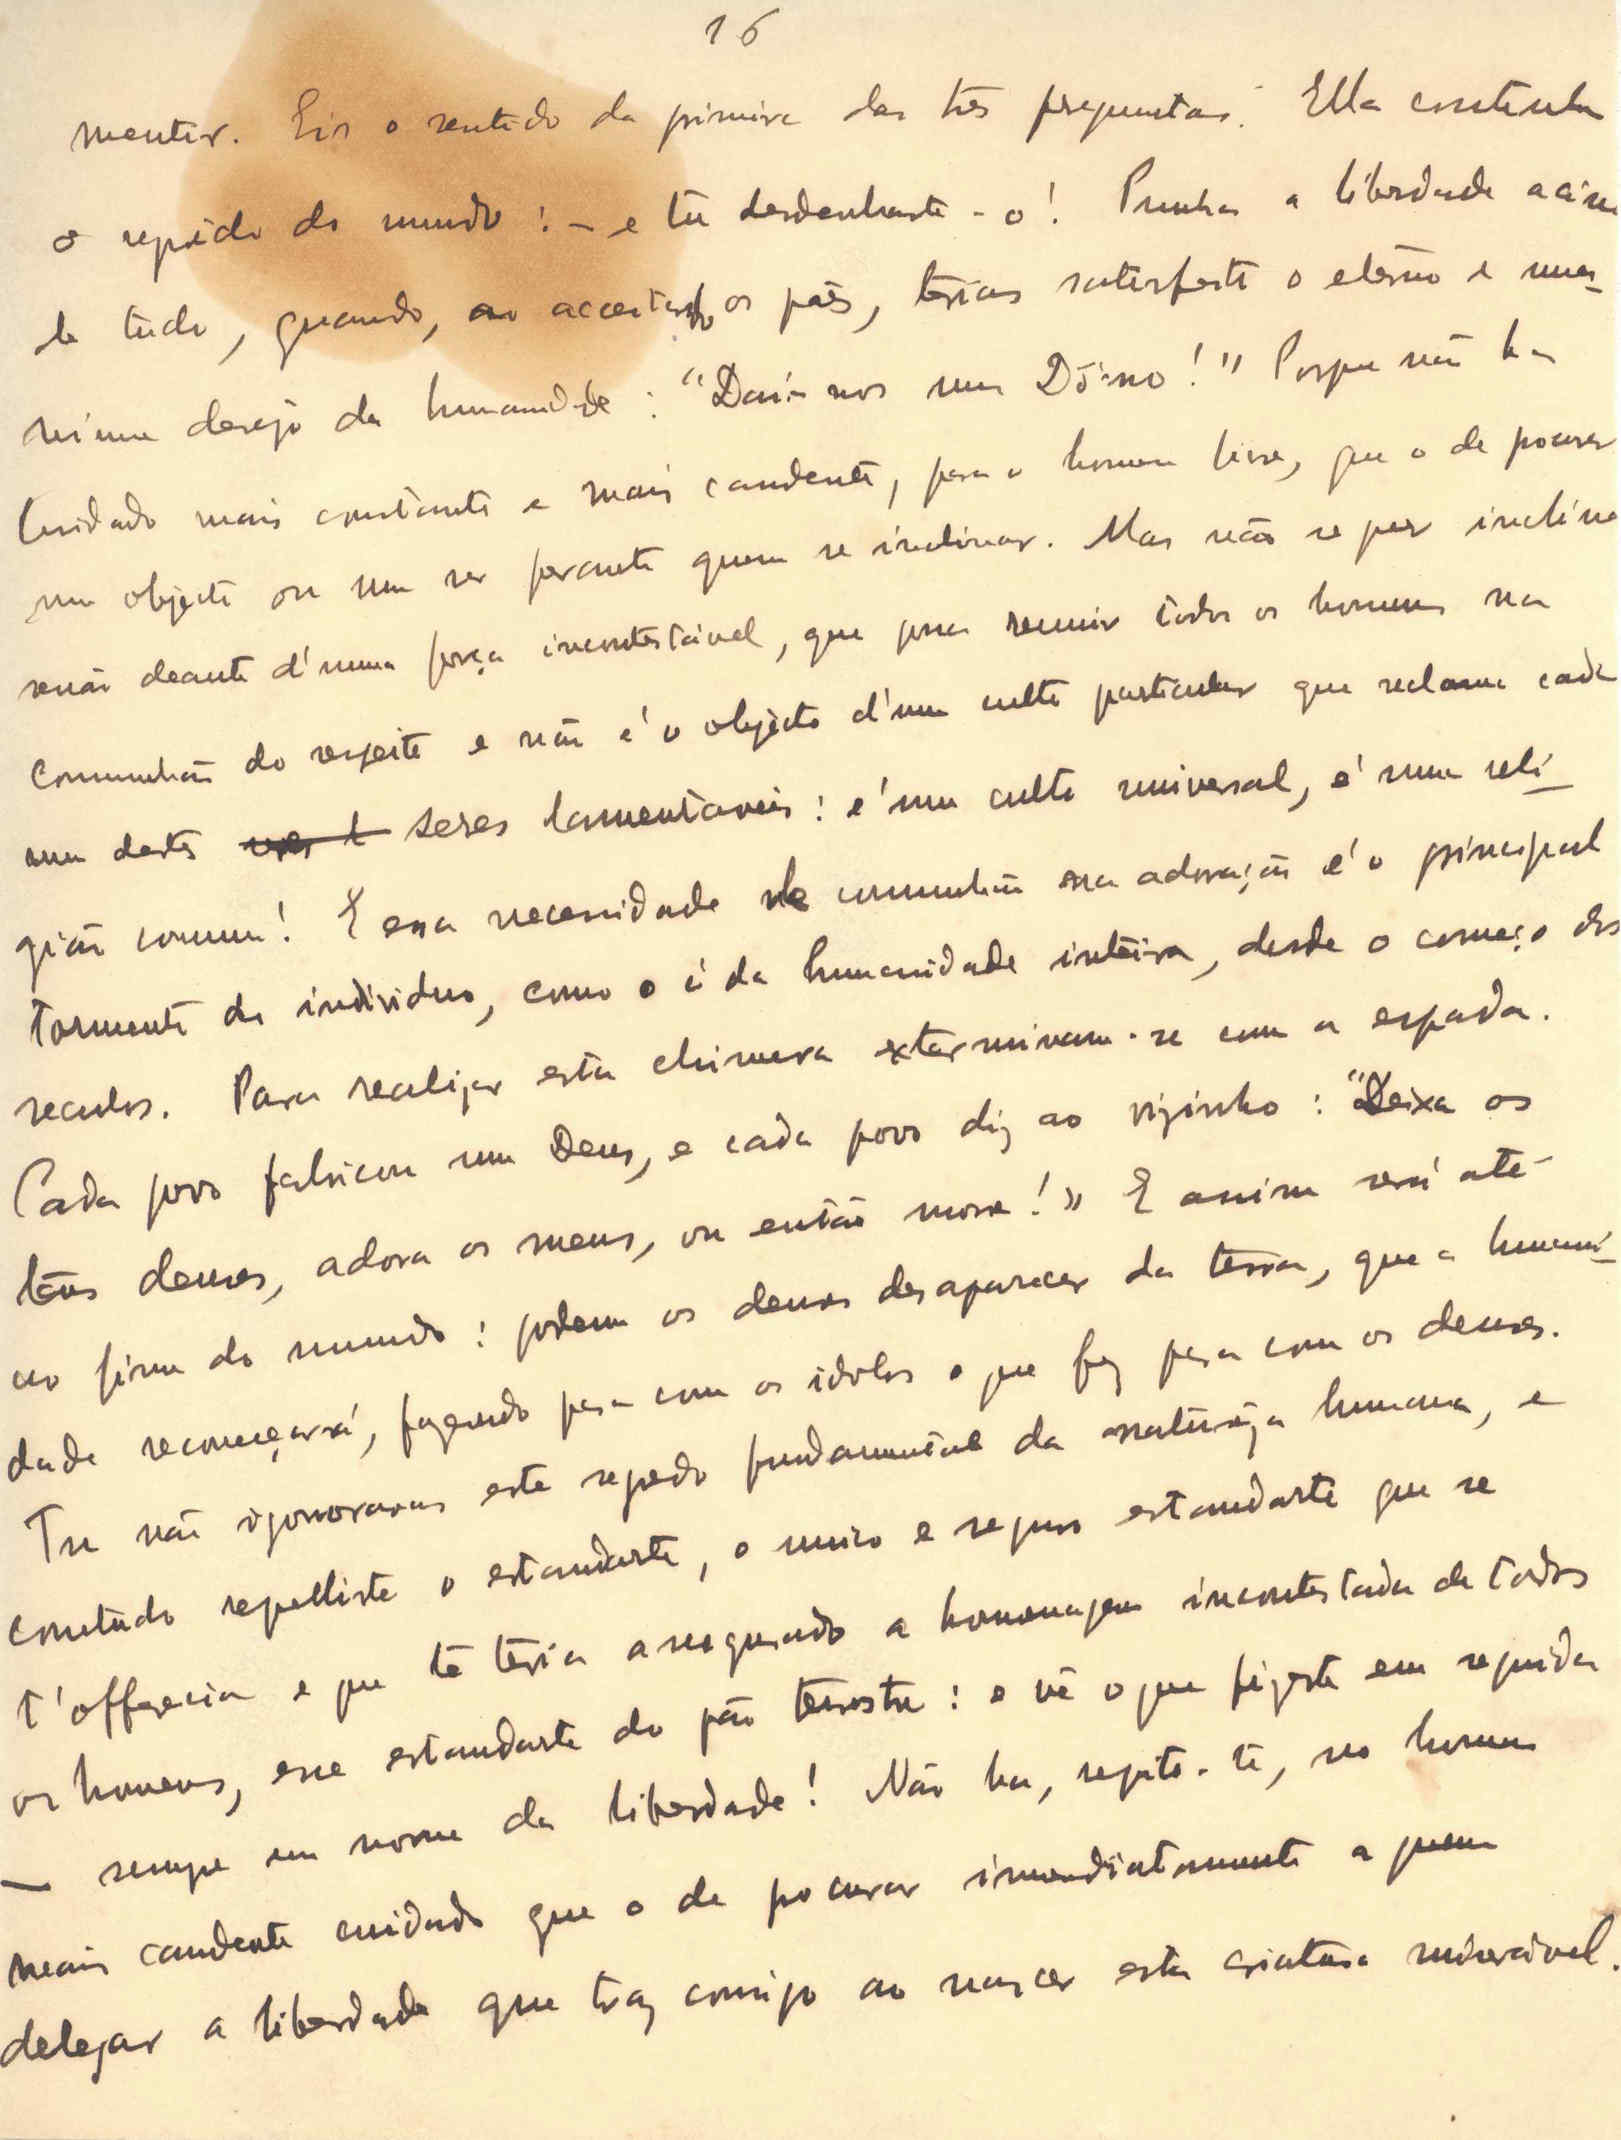 16
mentir. Eis o sentido da primeira das três preguntas. Ella continha
o segrêdo do mundo: – e tu desdenhaste-o! Punhas a liberdade acima
de tudo, quando, ao acceitando os pães, terias satisfeito o eterno e unâ-
nime desejo da humanidade: "Dai-nos um Dôno!" Porque não ha
cuidado mais constante e mais candente, para o homem livre, que o de procurar
um objecto ou um ser perante quem se inclinar. Mas não se quer inclinar
senão deante d'uma força incontestável, que possa reunir todos os homens na
communhão do respeito e não é o objecto d'um culto particular que reclama cada
um destes seres lamentaveis: é um culto universal, é uma reli-
gião commum! E essa necessidade de communhão na adoração é o principal
tormento do individuo, como o é da humanidade inteira, desde o começo dos
seculos. Para realizar esta chimera exterminam-se com a espada.
Cada povo fabricou um Deus, e cada povo diz ao vizinho: "Deixa os
teus deuses, adora os meus, ou então morre!" E assim será até
ao fim do mundo: podem os deuses desaparecer da terra, que a humani-
dade recomeçará, fazendo para com os idolos o que fez para com os deuses.
Tu não ignoravas este segredo fundamental da natureza humana, e
comtudo repelliste o estandarte, o unico e seguro estandarte que se
t'offerecia e que te teria assegurado a homenagem incontestada de todos
os homens, esse estandarte do pão terrestre: e vê o que fizeste em seguida
— sempre em nome da liberdade! Não ha, repito-te, no homem
mais candente cuidado que o de procurar immediatamente a quem
delegar a liberdade que traz comsigo ao nascer esta criatura miseravel.